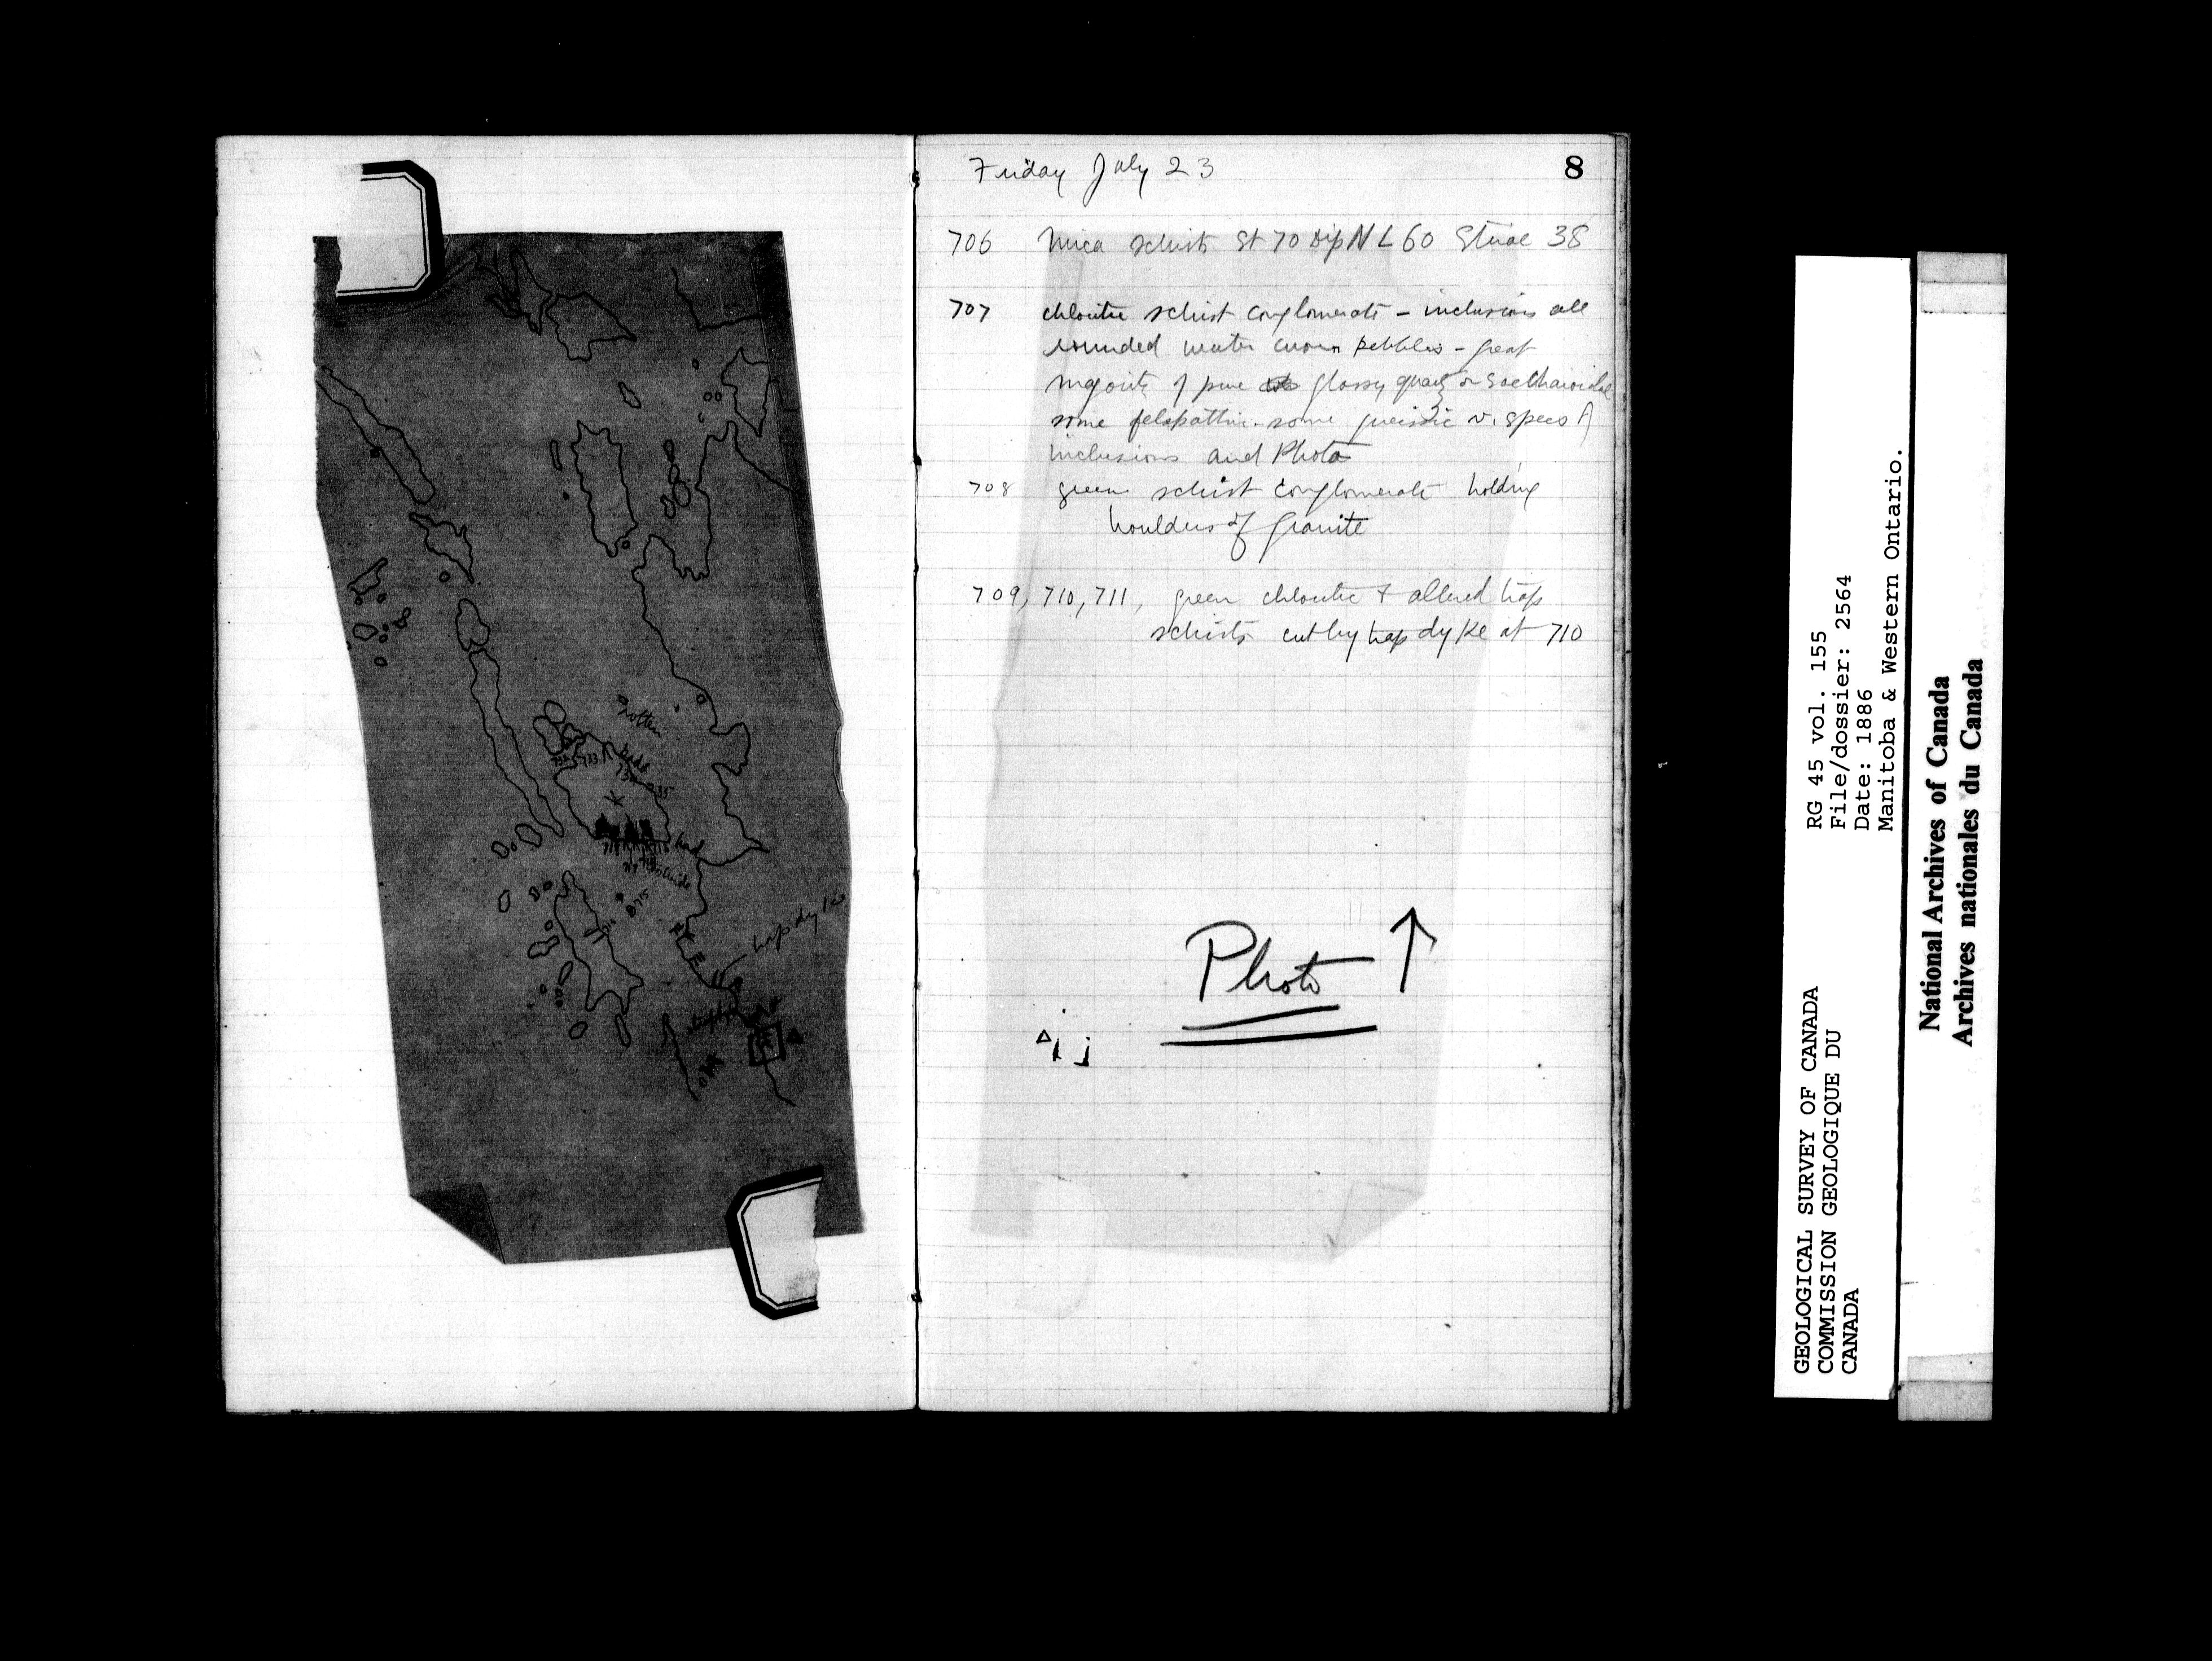 Friday July 23
8
706 Mica schists St 70 Dip N L 60 Striae 38
707 chloritic schist conglomerate - inclusions all
rounded water worn pebbles - great
majority of pure glassy quartz or saccharoidal
some felspathic - some gneissic v. specs A
inclusions and Photo
708 green schist conglomerate holding
boulders of granite
709, 710, 711, green chloritic & altered trap
schists cut by trap dyke at 710
Photo ↑
i j
733
735
715
trap dyke
RG 45 vol. 155
File/dossier: 2564
Date: 1886
Manitoba & Western Ontario.
GEOLOGICAL SURVEY OF CANADA
COMMISSION GEOLOGIQUE DU
CANADA
National Archives of Canada
Archives nationales du Canada